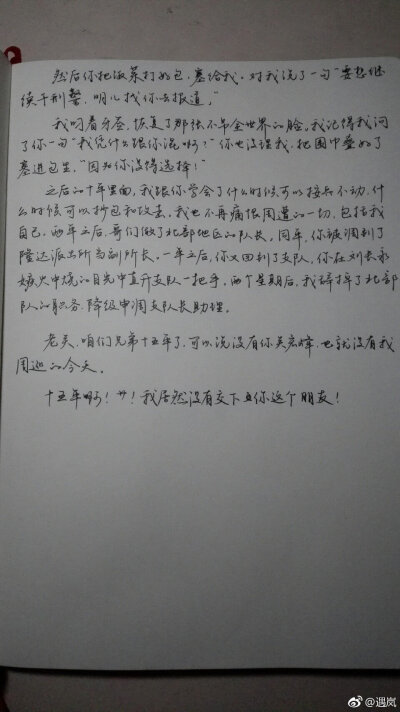 然后你把饭菜打好包，塞给我。对我说了一句“要想继
续干刑警，明儿找你去报道。”
我叼着牙签，恢复了那张不吊全世界的脸。我记得我问
了你一句“我凭什么跟你混啊？”你也没理我，把围巾叠好了
塞进包里，“因为你没得选择！”
之后的十年里面，我跟你学会了什么时候可以按兵不动，什
么时候可以抄包和攻袭。我也不再痛恨周遭的一切，包括我
自己。两年之后，哥们做了北部地区的队长。同年，你被调到了
隆达派出所当副所长。一年之后，你又回到了支队，你在刘长永
嫉火中烧的目光中直升支队一把手。两个星期后，我辞掉了北部
队的职务，降级申调支队长助理。
老关，咱们兄弟十五年了，可以说没有你关宏峰，也就没有我
周巡的今天。
十五年啊！艹！我居然没有交下且你这个朋友！
遇岚